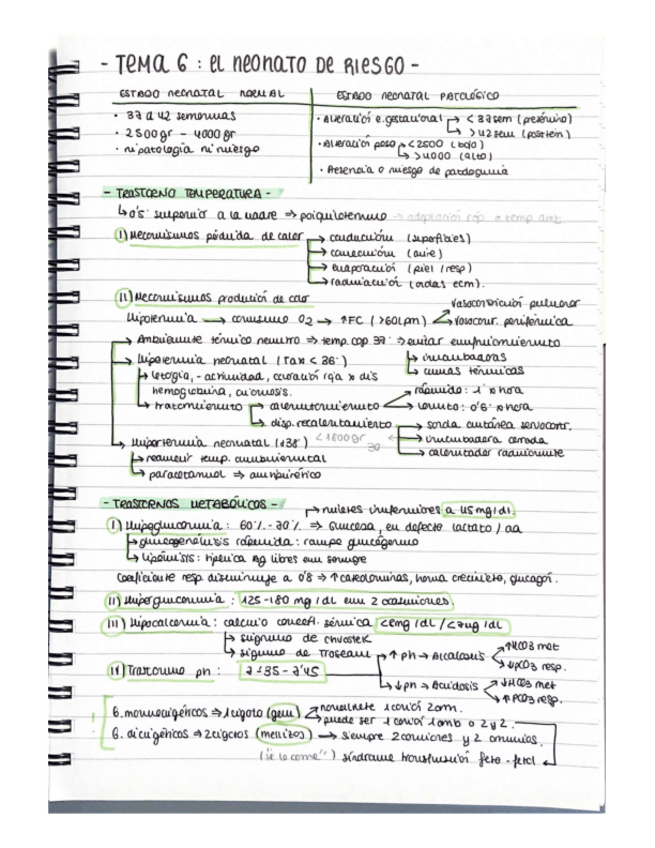 - TEMA 6 : EL NEONATO DE RIESGO -
ESTADO NEONATAL NORMAL
ESTADO NEONATAL PATOLÓGICO
· 37 a 42 semanas
· 2500gr - 4000gr
· ni patología ni riesgo
· Alteración e.gestacional → < 37sem (pretérmino)
→ >42sem (postérm)
· Alteración peso → <2500 (bajo)
→ >4000 (alto)
· Presencia o riesgo de patología
- TRASTORNO TEMPERATURA -
↳ 0'5 superior a la madre ⇒ poiquilotermo → adaptación ráp. a temp. amb.
I) Mecanismos pérdida de calor → conducción (superficies)
→ convección (aire)
→ evaporación (piel / resp)
→ radiación (ondas ecm).
II) Mecanismos producción de calor
Hipotermia → consumo O2 → ↑FC (>60lpm) → vasoconstricción pulmonar
→ vasoconstr. periférica
→ Ambiente térmico neutro → temp. cop 37 ⇒ evitar enfriamiento
→ Hipotermia neonatal (Tax < 36°) → incubadoras
→ cunas térmicas
↳ letargia, - actividad, coloración roja x dis
hemoglobina, cianosis.
↳ tratamiento → calentamiento → rápido: 1° x hora
→ lento: 0'5° x hora
→ disp. recalentamiento → sonda cutánea servocontr.
→ incubadora cerrada
→ calentador radiante
↳ Hipertermia neonatal (+38°) <1800gr
↳ reducir temp. ambiental
↳ paracetamol ⇒ antipirético
- TRASTORNOS METABÓLICOS -
→ niveles inferiores a 45mg/dl.
I) Hipoglucemia : 60% - 70% ⇒ Glucosa, en defecto lactato / aa
↳ glucogenólisis rápida: rompe glucógeno
↳ lipólisis: libres en sangre
Coeficiente resp. disminuye a 0'8 → ↑ catecolaminas, horm. crecimiento, glucagón.
II) Hiperglucemia : 125-180 mg/dl en 2 ocasiones.
III) Hipocalcemia : calcio concent. sérica <8mg/dL / <7mg/dL
↳ signo de chvostek
↳ signo de Trosseau
IV) Trastorno ph : 7'35 - 7'45 → ↑ph → Alcalosis → ↑HCO3 met
→ ↓pCO3 resp.
→ ↓ph → Acidosis → ↓HCO3 met
→ ↑PCO3 resp.
G. monocigóticos ⇒ 1 cigoto (gem) → normalmente 1 corion 2am.
→ puede ser 1 corion 1amb o 2 y 2.
G. dicigóticos ⇒ 2cigotos (mellizos) → siempre 2 coriones y 2 amnios.
("se lo come") síndrome transfusión feto-fetal